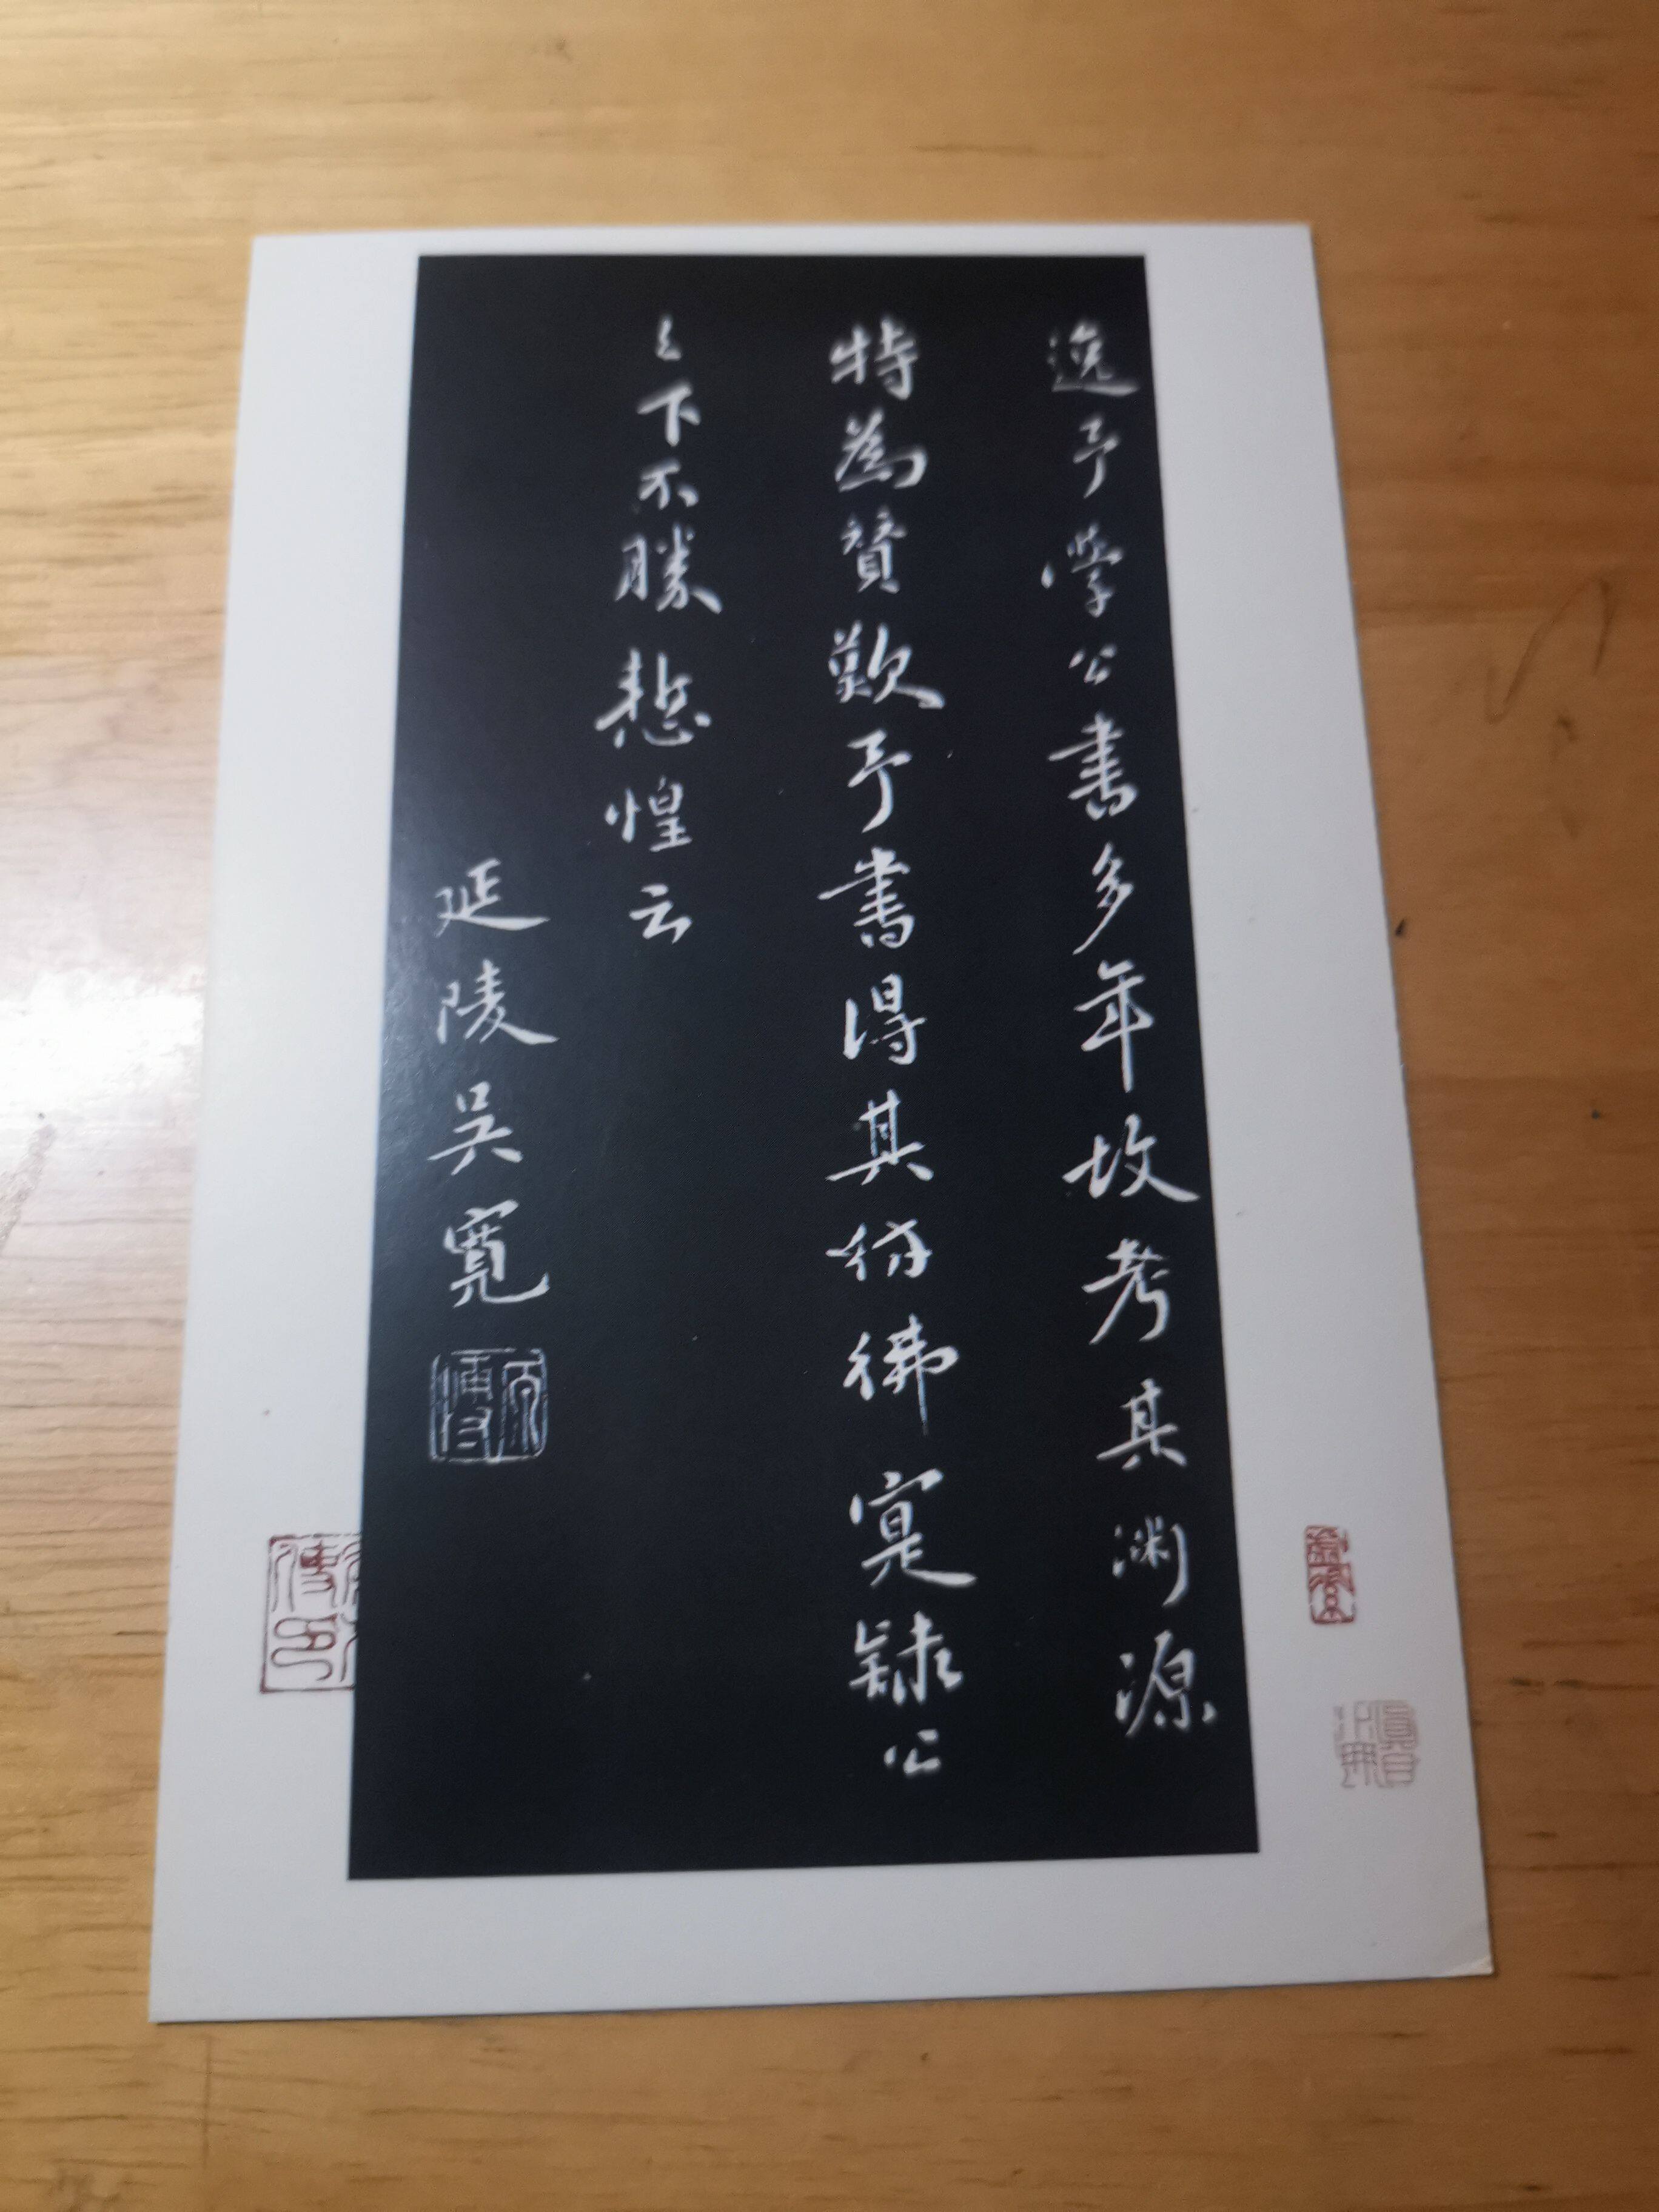 逸予學公書多年故考其渊源
特為贊歎予書得其彷彿寔隸公
之下不勝慙惶云
延陵吳寬
原博